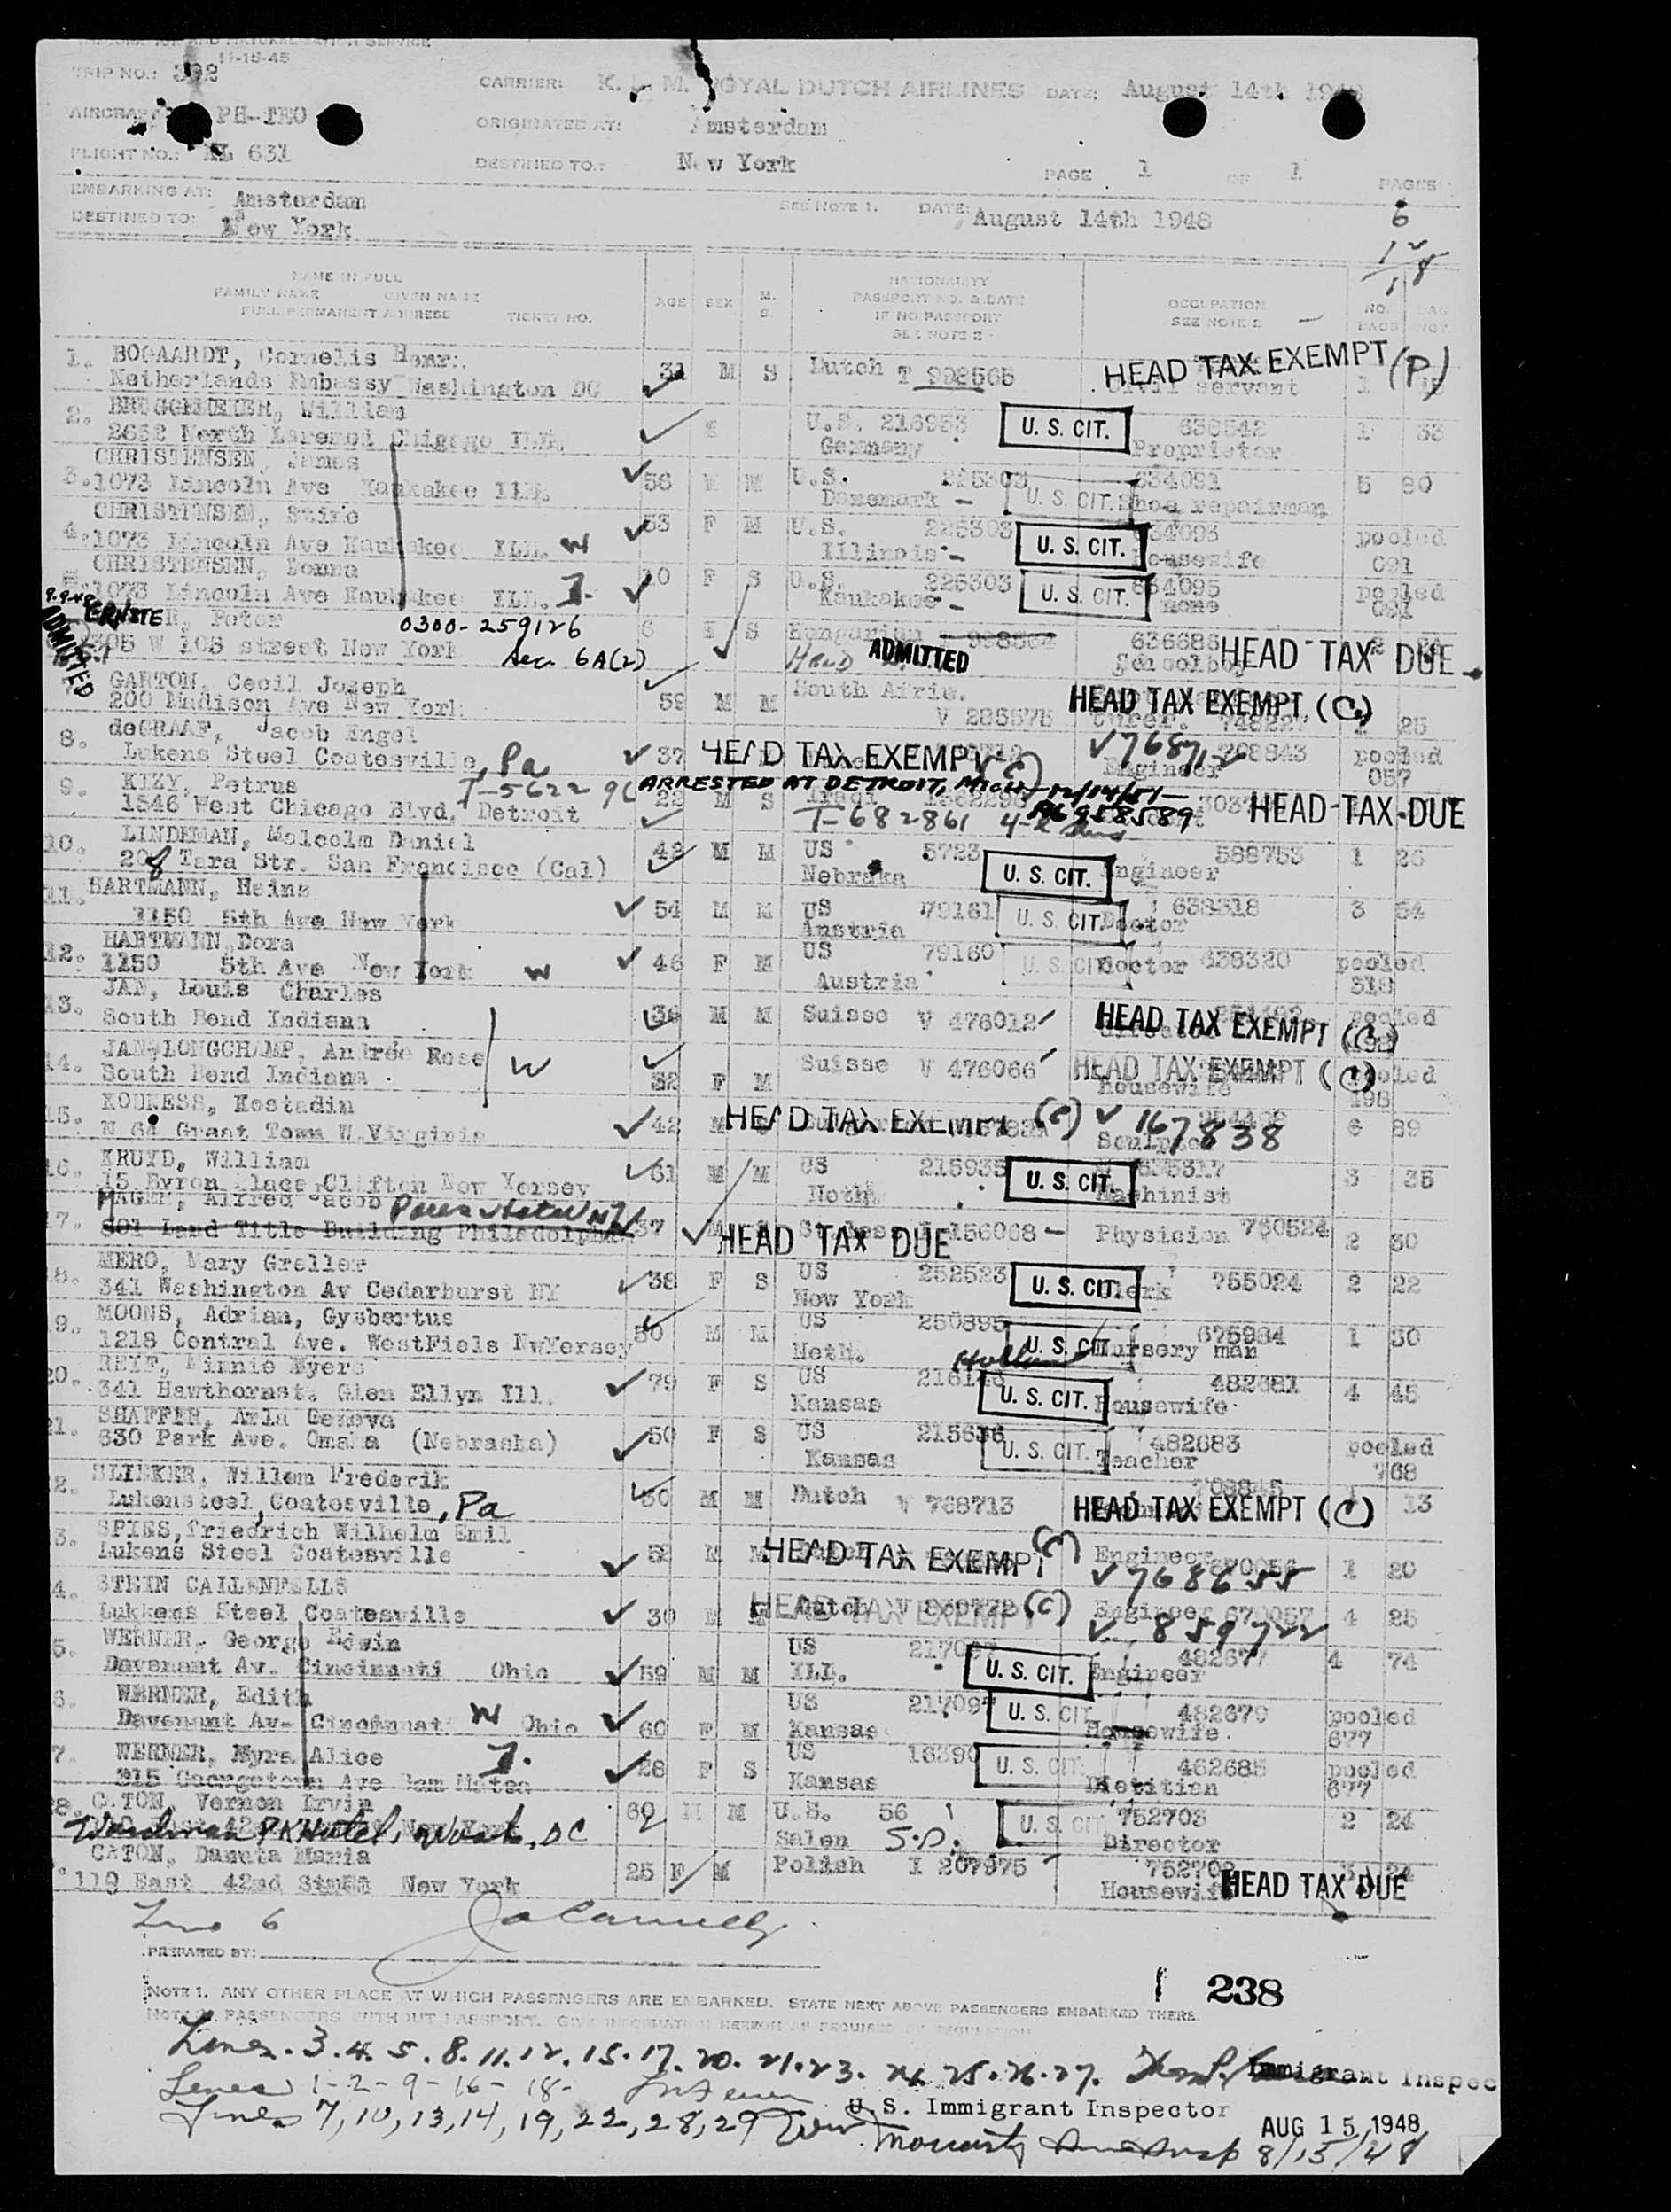 11-15-45
TRIP NO.: 392
CARRIER: K. L. M. ROYAL DUTCH AIRLINES DATE: August 14th 1948
AIRCRAFT PH-TEO
ORIGINATED AT: Amsterdam
FLIGHT NO.: KL 631
DESTINED TO.: New York
PAGE 1 OF 1 PAGES
EMBARKING AT: Amsterdam
SEE NOTE 1. DATE: August 14th 1948
DESTINED TO: New York
6
NAME IN FULL
FAMILY NAME GIVEN NAME
FULL PERMANENT ADDRESS TICKET NO.
AGE SEX M. S.
NATIONALITY
PASSPORT NO. & DATE
IF NO PASSPORT
SEE NOTE 2
OCCUPATION
SEE NOTE 2
NO. BAGS
1. BOGAARDT, Cornelis
Netherlands Embassy Washington DC
M S Dutch T 992565 HEAD TAX EXEMPT (P)
Civil servant 1
2. William
U.S. 216953 U. S. CIT. 636542 1 33
Germany Proprietor
CHRISTENSEN, James
3. 1073 Lincoln Ave Kankakee ILL.
56 M M U.S. 225303 634091 5 80
Danemark - U. S. CIT. Shoe repairman
CHRISTENSEN,
4. 1073 Lincoln Ave Kaukakee ILL. W
53 F M U.S. 225303 U. S. CIT. 634093 pooled
Illinois - Housewife 091
CHRISTENSEN, Donna
1073 Lincoln Ave Kaukakee ILL.
10 F S U.S. 225303 U. S. CIT. 634095 pooled
Kaukakee - none 091
ADMITTED
ERNSTER, Peter 0300-259126
305 W 108 street New York Sec. 6A(2)
6 S Hungarian 636685
HELD ADMITTED Schoolboy HEAD TAX DUE
GARTON, Cecil Joseph
200 Madison Ave New York
59 M M South Afric. HEAD TAX EXEMPT (C)
V 286575 25
8. deGRAAF, Jacob Engel
Lukens Steel Coatesville, Pa
37 HEAD TAX EXEMPT (C) 708843 pooled
Engineer 057
9. KIZY, Petrus T-562296
1546 West Chicago Blvd, Detroit
ARRESTED AT DETROIT, MICH - 12/14/51 -
M S Iraqi A6958589 HEAD TAX DUE
T-682861
10. LINDEMAN, Malcolm Daniel
208 Tara Str. San Francisco (Cal)
42 M M US 5723 U. S. CIT. 588753 1 26
Nebraka Engineer
11. HARTMANN, Heinz
1150 5th Ave New York
54 M M US 79161 U. S. CIT. 638318 3 54
Austria Doctor
12. HARTMANN, Dora
1150 5th Ave New York W
46 F M US 79160 U. S. CIT. Doctor 638320 pooled
Austria 318
13. JAN, Louis Charles
South Bend Indiana
36 M M Suisse V 476012 HEAD TAX EXEMPT (C) pooled
14. JAN-LONGCHAMP, Andrée Rose W
South Bend Indiana
32 F M Suisse V 476066 HEAD TAX EXEMPT (C) pooled
housewife 198
15. KODNESS, Kostadin
N 64 Grant Town W.Virginia
42 M HEAD TAX EXEMPT (C) 167838 6 89
16. KRUYD, William
15 Byron Place Clifton New Yersey
61 M M US 215935 U. S. CIT. 3 35
Neth. Machinist
17. MAGER, Alfred Jacob
801 Land Title Building Philadelphia
37 M HEAD TAX DUE 156068 - Physician 760524 2 30
18. MERO, Mary Greller
341 Washington Av Cedarhurst NY
38 F S US 252523 U. S. CIT. Clerk 755024 2 22
New York
19. MOONS, Adrian, Gysbertus
1218 Central Ave. WestFiels NwYersey
50 M M US 250895 U. S. CIT. 675984 1 30
Neth. Holland Nursery man
20. REIF, Minnie Myers
341 Hawthornst. Glen Ellyn Ill.
79 F S US U. S. CIT. 482681 4 45
Kansas Housewife
21. SHAFFER, Arla Geneva
630 Park Ave. Omaha (Nebraska)
50 F S US 215636 U. S. CIT. 482683 pooled
Kansas Teacher 768
2. SLIEKER, Willem Frederik
Lukensteel, Coatesville, Pa
50 M M Dutch V 768713 HEAD TAX EXEMPT (C) 13
3. SPIES, Friedrich Wilhelm Emil
Lukens Steel Coatesville
52 M M HEAD TAX EXEMPT (C) Engineer 670056 1 20
768655
4. STEIN CALLENFELLS
Lukkens Steel Coatesville
30 M HEAD TAX EXEMPT (C) Engineer 670057 4 25
859722
5. WERNER, George Edwin
Davenant Av. Cincinnati Ohio
59 M M US 217097 U. S. CIT. 482677 4 74
ILL. Engineer
6. WERNER, Edith
Davenant Av- Cincinnati W Ohio
60 F M US 217097 U. S. CIT. 482679 pooled
Kansas Housewife 677
7. WERNER, Myra Alice
215 Georgetown Ave San Mateo
28 F S US 18390 U. S. CIT. 462685 pooled
Kansas Dietitian 677
8. CATON, Vernon Irvin
Wardman PK Hotel, Wash, DC
60 M M U.S. 56 U. S. CIT. 752703 2 24
Salen S.D. Director
CATON, Danuta Maria
119 East 42nd Street New York
25 F M Polish I 207975 752702
Housewife HEAD TAX DUE
Line 6
PREPARED BY:
NOTE 1. ANY OTHER PLACE AT WHICH PASSENGERS ARE EMBARKED. STATE NEXT ABOVE PASSENGERS EMBARKED THERE.
238
NOTE 2. PASSENGERS WITHOUT PASSPORT. GIVE INFORMATION HEREON AS REQUIRED BY REGULATION
Lines. 3. 4. 5. 8. 11. 12. 15. 17. 20. 21. 23. 24 25. 26. 27. Immigrant Inspec
Lines 1-2-9-16-18-
Lines 7, 10, 13, 14, 19, 22, 28, 29
U.S. Immigrant Inspector
AUG 15 1948
Moriarty 8/15/48